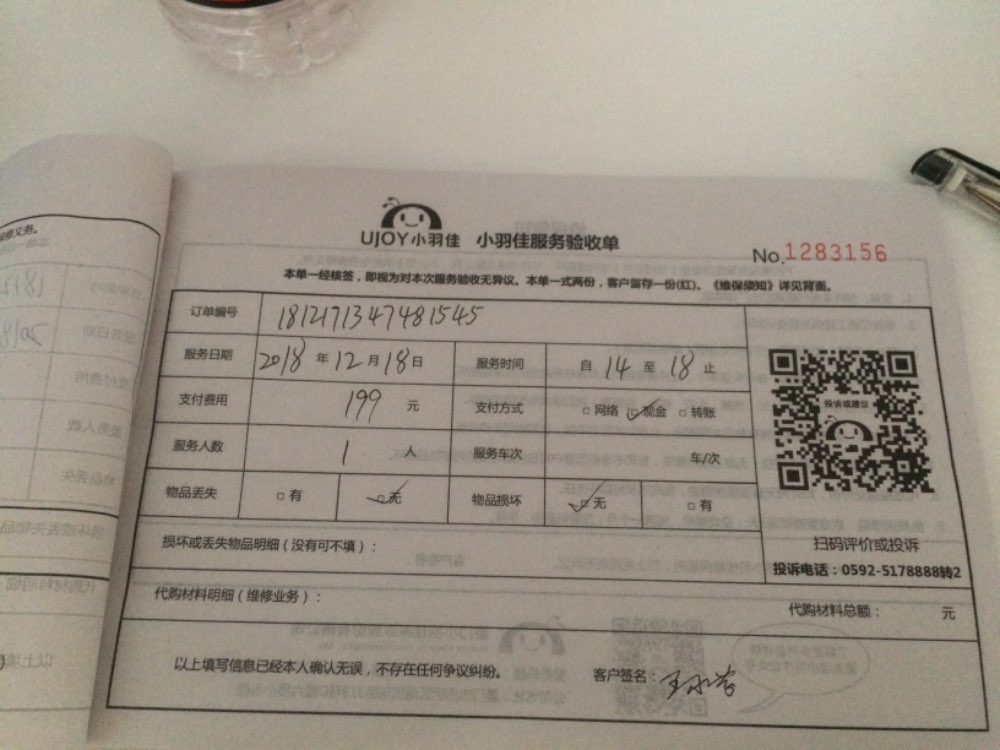 UJOY小羽佳 小羽佳服务验收单
No.1283156
本单一经核签，即视为对本次服务验收无异议。本单一式两份，客户留存一份(红)。《维保须知》详见背面。
订单编号 181217134748​1545
服务日期 2018 年 12 月 18 日 服务时间 自 14 至 18 止
支付费用 199 元 支付方式 □网络 ☑现金 □转账
服务人数 1 人 服务车次 车/次
物品丢失 □有 ☑无 物品损坏 ☑无 □有
投诉或建议
扫码评价或投诉
投诉电话：0592-5178888转2
损坏或丢失物品明细（没有可不填）：
代购材料明细（维修业务）：
代购材料总额： 元
以上填写信息已经本人确认无误，不存在任何争议纠纷。
客户签名：